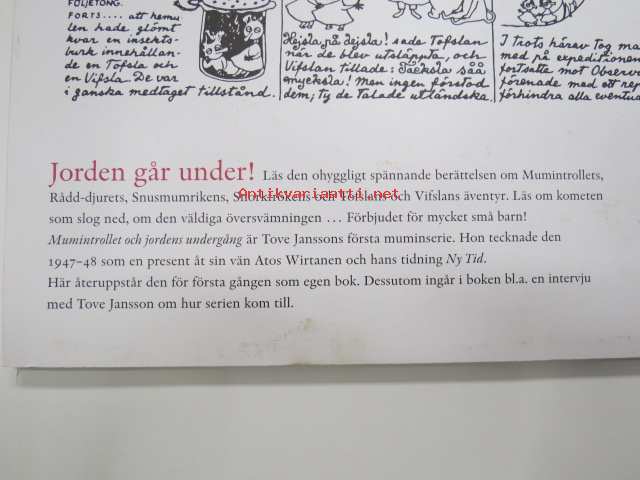 FÖLJETONG.
FORTS.... att hemu
len hade glömt
kvar en insekts-
burk innehållan-
de en Tofsla och
en Vifsla. De var
i ganska medtaget tillstånd.
Hejsla på dejsla! sade Tofslan
när de blev utsläppta, och
Vifslan tillade: Täcksla såå
mycksla! men ingen förstod
dem; ty de talade utländska.
I trots härav tog ma
med på expeditionen
fortsatte mot Observ
förenade med att rep
förhindra alla eventua
Jorden går under! Läs den ohyggligt spännande berättelsen om Mumintrollets,
Rådd-djurets, Snusmumrikens, Snorkfrökens och Tofslans och Vifslans äventyr. Läs om kometen
som slog ned, om den väldiga översvämningen … Förbjudet för mycket små barn!
Mumintrollet och jordens undergång är Tove Janssons första muminserie. Hon tecknade den
1947–48 som en present åt sin vän Atos Wirtanen och hans tidning Ny Tid.
Här återuppstår den för första gången som egen bok. Dessutom ingår i boken bl.a. en intervju
med Tove Jansson om hur serien kom till.
Antikvariaatti.net